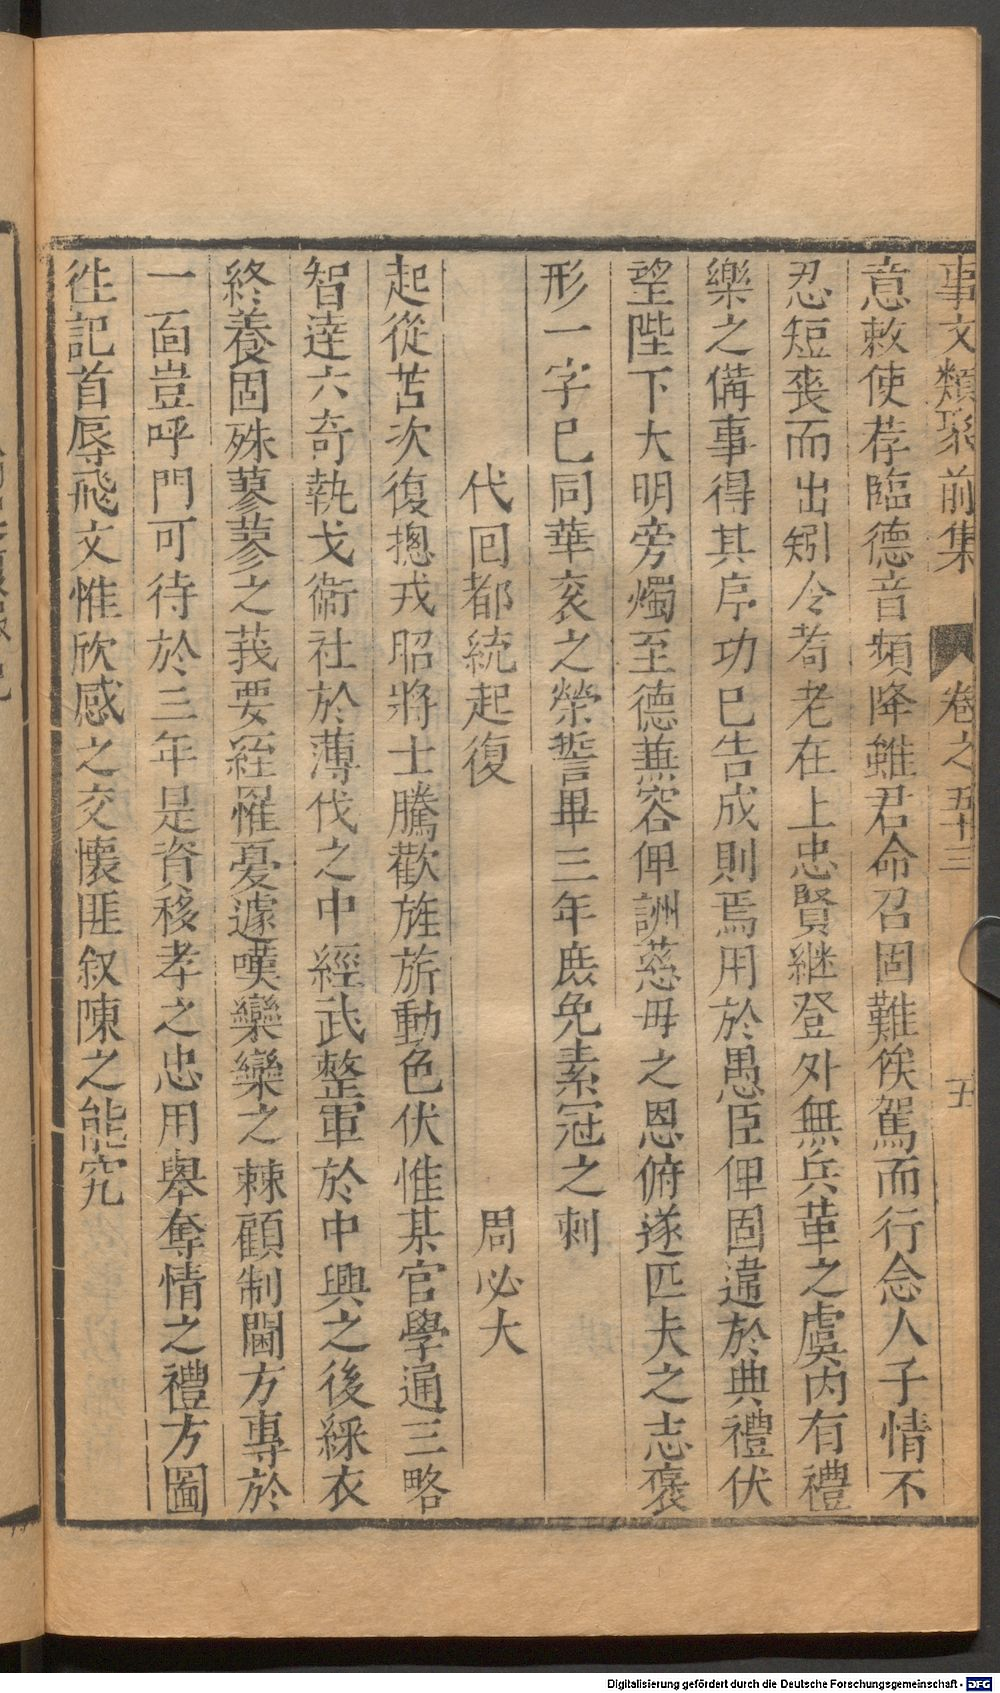 事文類聚前集 卷之五十三 五
意敕使荐臨德音頻降雖君命召固難俟駕而行念人子情不
忍短丧而出矧今耇老在上忠賢継登外無兵革之虞内有禮
樂之備事得其序功已告成則焉用於愚臣俾固違於典禮伏
望陛下大明旁燭至德兼容俾詶慈毋之恩俯遂匹夫之志褒
形一字已同華衮之榮誓畢三年庶免素冠之刺
代回都統起復 周必大
起從苫次復摠戎昭將士騰歡旌旂動色伏惟某官學通三略
智達六奇執戈衛社於薄伐之中經武整軍於中興之後綵衣
終養固殊蓼蓼之莪要絰罹憂遽嘆欒欒之棘顧制閫方專於
一面豈呼門可待於三年是資移孝之忠用舉奪情之禮方圖
徃記首辱飛文惟欣感之交懷匪叙陳之能究
Digitalisierung gefördert durch die Deutsche Forschungsgemeinschaft - DFG